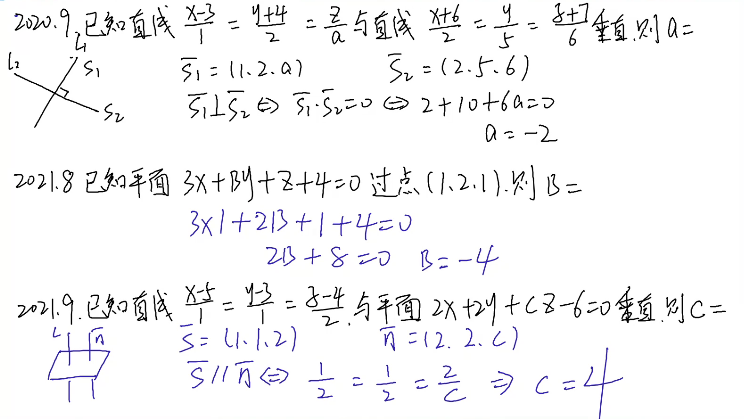 2020.9.已知直线 x-3/1 = y+4/2 = z/a 与直线 x+6/2 = y/5 = z+7/6 垂直.则a=
l₁
l₂
S₁
S₂
s̄₁=(1.2.a) s̄₂=(2.5.6)
s̄₁⊥s̄₂ ⇔ s̄₁·s̄₂=0 ⇔ 2+10+6a=0
a=-2
2021.8 已知平面 3x+By+z+4=0 过点(1.2.1).则B=
3×1+2B+1+4=0
2B+8=0 B=-4
2021.9.已知直线 x-5/1 = y-3/1 = z-4/2 .与平面 2x+2y+cz-6=0垂直.则C=
L n̄
s̄=(1.1.2) n̄=(2.2.c)
s̄//n̄ ⇔ 1/2 = 1/2 = 2/c ⇒ c=4